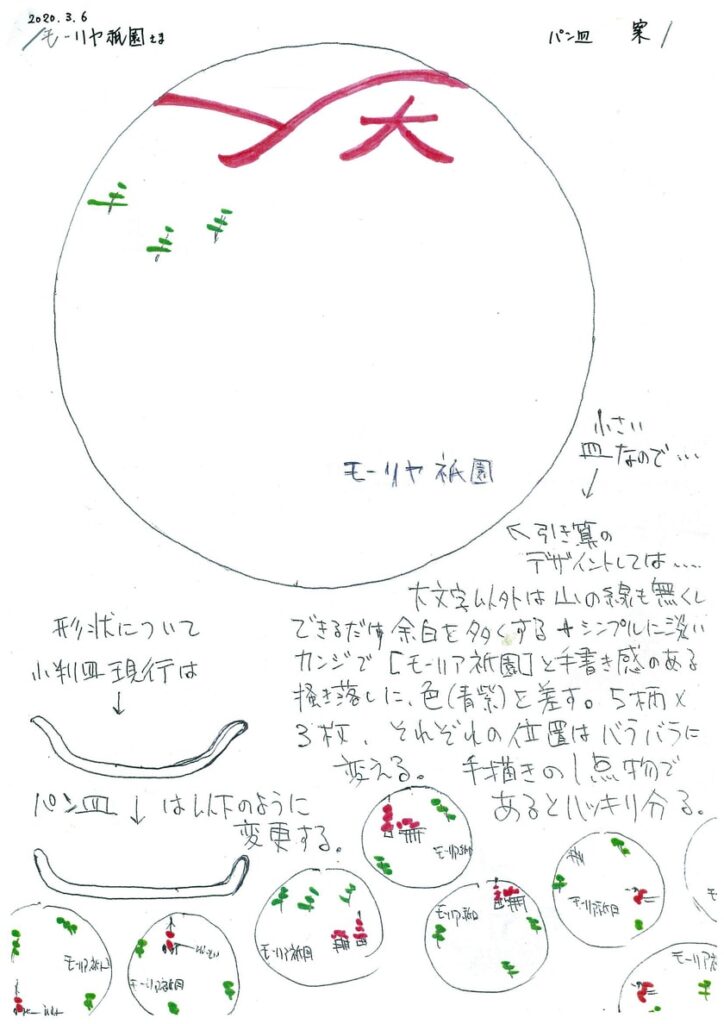 2020.3.6
モーリヤ祇園さま
パン皿 案
大
モーリヤ祇園
小さい
皿なので…
引き算の
デザイントしては....
大文字以外は山の線も無くし
できるだけ余白を多くする+シンプルに淡い
カンジで[モーリア祇園]と手書き感のある
掻き落しに、色(青紫)を差す。5柄×
3枚、それぞれの位置はバラバラに
変える。手描きの1点物で
あるとハッキリ分る。
形状について
小判皿現行は
パン皿は以下のように
変更する。
モーリア祇園
モーリア祇園
モーリア祇園